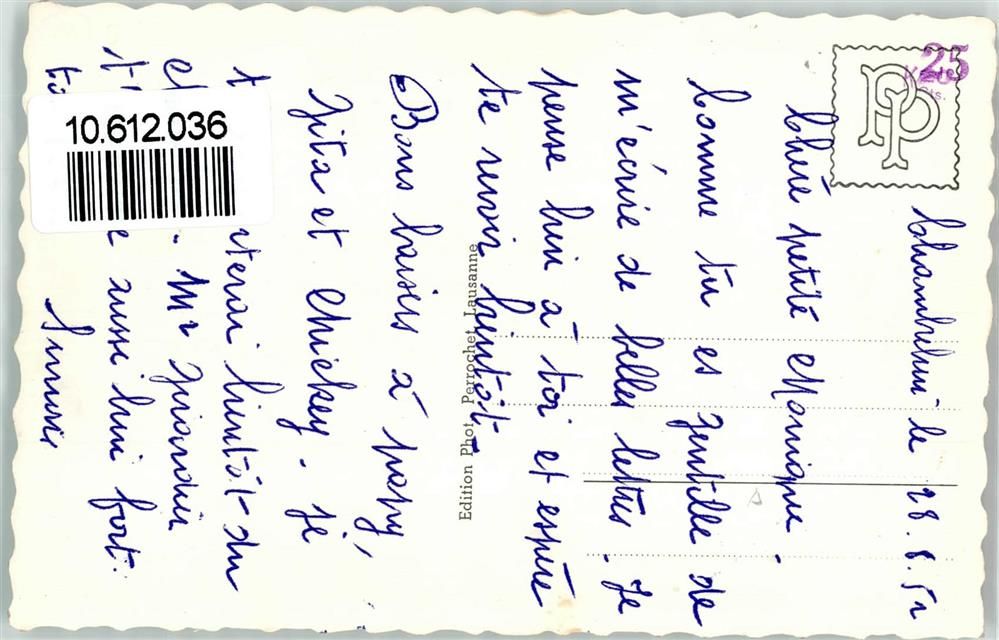 le 28.8.51
Chère petite Monique.
Comme tu es gentille de
m'écrire de belles lettres. Je
pense bien à toi et espère
te revoir bientôt.
Bons baisers à papy,
Gita et Chickey. Je
t terai bientôt du
. Mr
e aussi bien fort.
Edition Phot. Perrochet, Lausanne
PP
25
Cts.
10.612.036